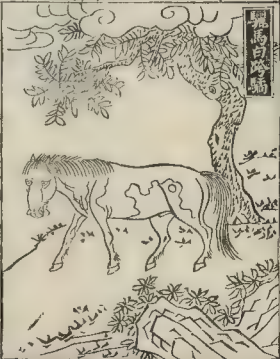 驪馬白跨驈